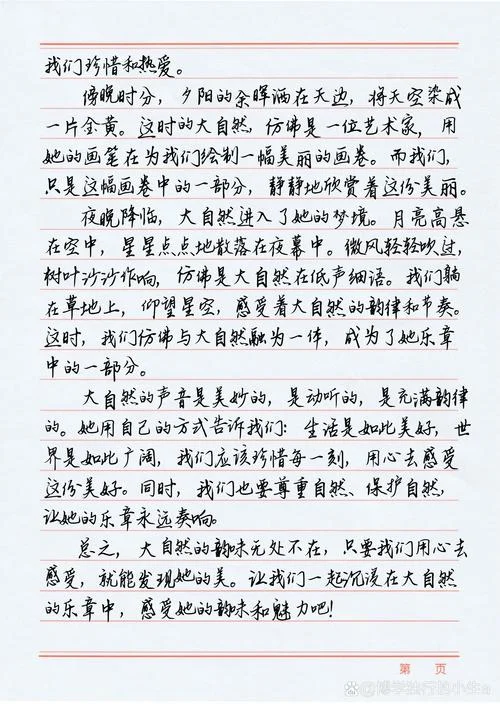 我们珍惜和热爱。
傍晚时分，夕阳的余晖洒在天边，将天空染成
一片金黄。这时的大自然，仿佛是一位艺术家，用
她的画笔在为我们绘制一幅美丽的画卷。而我们，
只是这幅画卷中的一部分，静静地欣赏着这份美丽。
夜晚降临，大自然进入了她的梦境。月亮高悬
在空中，星星点点地散落在夜幕中。微风轻轻吹过，
树叶沙沙作响，仿佛是大自然在低声细语。我们躺
在草地上，仰望星空，感受着大自然的韵律和节奏。
这时，我们仿佛与大自然融为一体，成为了她乐章
中的一部分。
大自然的声音是美妙的，是动听的，是充满韵律
的。她用自己的方式告诉我们：生活是如此美好，世
界是如此广阔，我们应该珍惜每一刻，用心去感受
这份美好。同时，我们也要尊重自然、保护自然，
让她的乐章永远奏响。
总之，大自然的韵味无处不在，只要我们用心去
感受，就能发现她的美。让我们一起沉浸在大自然
的乐章中，感受她的韵味和魅力吧！
第 页
@博学独行的小生a